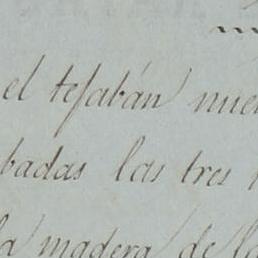 el tejabán nue
badas las tres
la madera de la